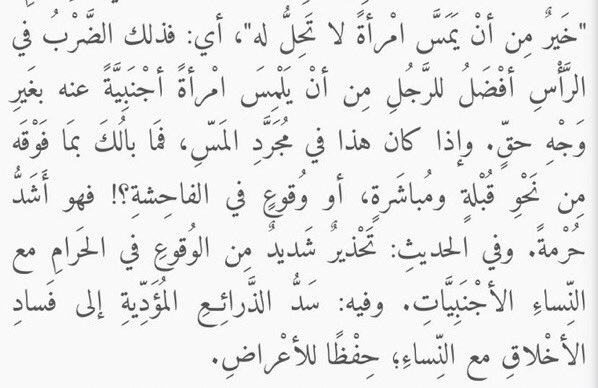 "خَيرٌ مِن أنْ يَمَسَّ امْرأةً لا تَحِلُّ له"، أي: فذلك الضَّرْبُ في
الرَّأْسِ أفْضَلُ للرَّجُلِ مِن أنْ يَلْمِسَ امْرأةً أجْنَبِيَّةً عنه بغَيرِ
وَجْهِ حقٍّ. وإذا كان هذا في مُجَرَّدِ المَسِّ، فمَا بالُكَ بمَا فَوْقَه
مِن نَحْوِ قُبْلةٍ ومُباشَرةٍ، أو وُقوعٍ في الفاحِشةِ؟! فهو أَشَدُّ
حُرْمةً. وفي الحديثِ: تَحْذيرٌ شَديدٌ مِن الوُقوعِ في الحَرامِ مع
النِّساءِ الأجْنَبِيَّاتِ. وفيه: سَدُّ الذَّرائِعِ المُؤَدِّيةِ إلى فَسادِ
الأخْلاقِ مع النِّساءِ؛ حِفْظًا للأعْراضِ.